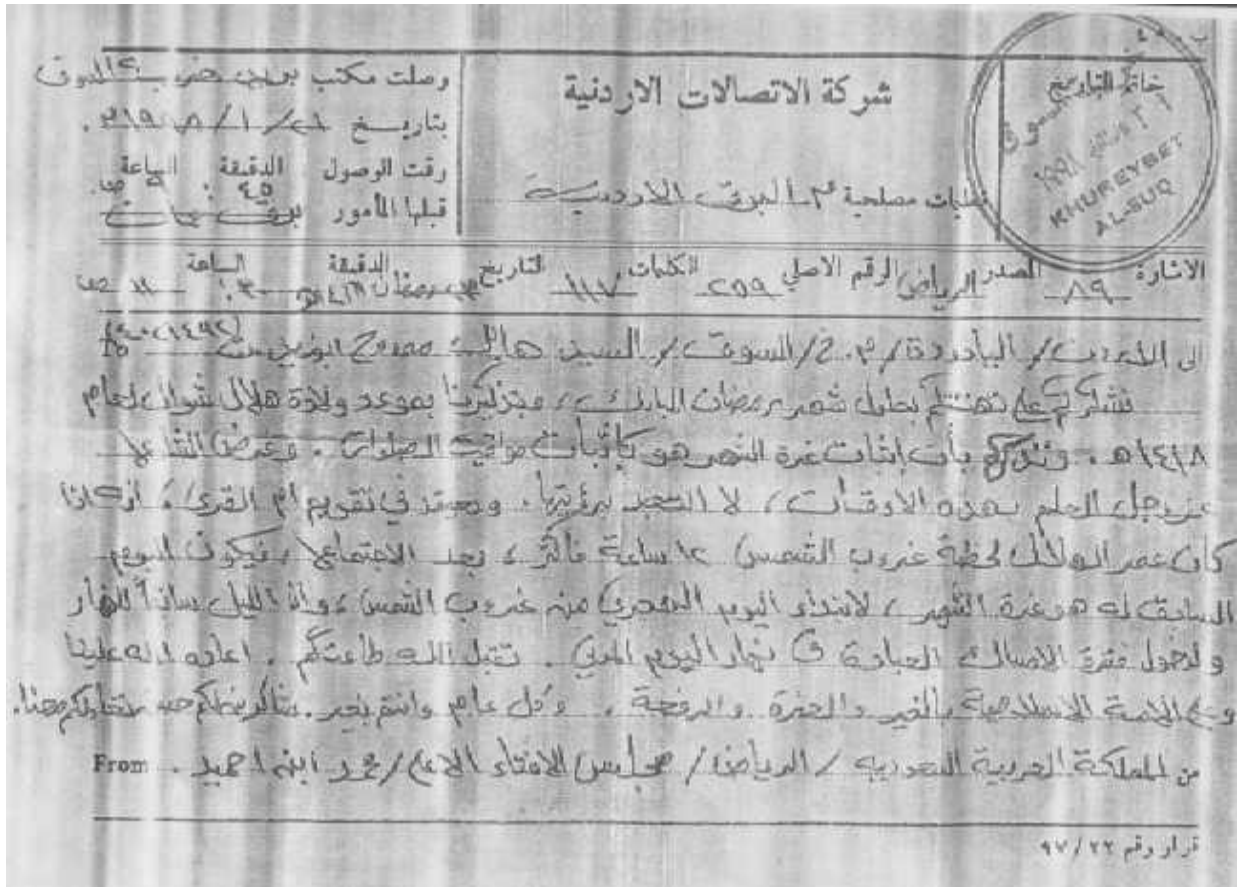 ب ٤٥
خاتم التاريخ
KHUREYBET
AL-SUQ
شركة الاتصالات الاردنية
وصلت مكتب بريد السوق
بتاريخ ٢١/١/١٩٩٨
وقت الوصول الدقيقة ٤٥ الساعة ٩ ص
قبلها المأمور
طلبات مصلحة البرق الاردنية
الاشارة ٨٩ المصدر الرياض الرقم الاصلي ٢٥٩ الكلمات ١١٧ التاريخ رمضان ١٤١٨ الدقيقة ٣٠ الساعة ص
الى الاردن / اليادودة / م. خ / السوق / السيد هاني ممدوح
نشكركم على تهنئتكم بحلول شهر رمضان المبارك، وبتذكيرنا بموعد ولادة هلال شوال لعام
١٤١٨هـ. ونذكركم بأن إثبات غرة الشهر هو كإثبات مواقيت الصلوات. وغرض الشارع
عز وجل العلم بهذه الاوقات، لا التعبد برؤيتها. ومعتمد في تقويم ام القرى، أنه اذا
كان عمر الهلال لحظة غروب الشمس ١٢ ساعة فأكثر، بعد الاجتماع، فيكون اليوم
السابق له هو غرة الشهر، لابتداء اليوم الهجري من غروب الشمس، وأن الليل سابقاً للنهار
ولدخول فترة الامساك العبادة في نهار اليوم المدني. تقبل الله طاعتكم. اعاده الله علينا
وعلى الامة الاسلامية بالخير والعزة والرفعة، وكل عام وانتم بخير.
من المملكة العربية السعودية / الرياض / مجلس الافتاء الاعلى / محمد ابن احميد. From
قرار رقم ٩٧/٢٢